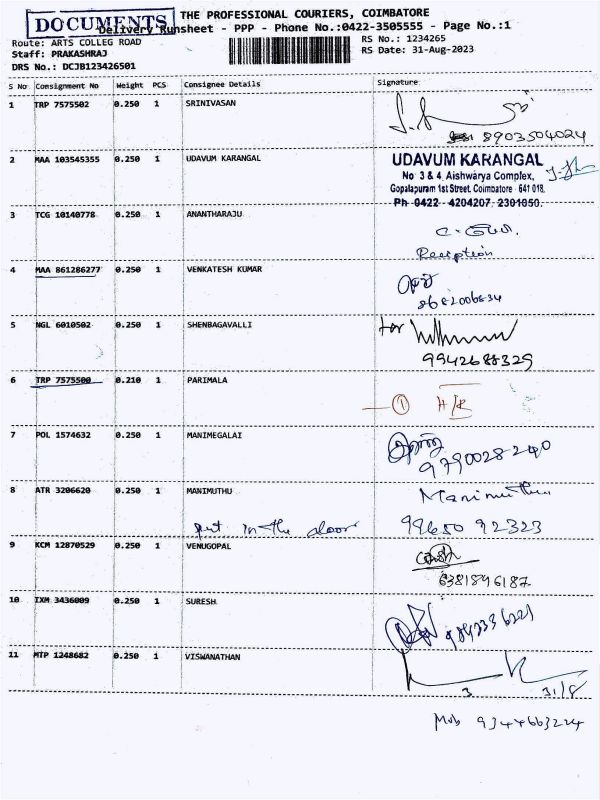 DOCUMENTS
THE PROFESSIONAL COURIERS, COIMBATORE
Delivery Runsheet - PPP - Phone No.:0422-3505555 - Page No.:1
Route: ARTS COLLEG ROAD
RS No.: 1234265
Staff: PRAKASHRAJ
RS Date: 31-Aug-2023
DRS No.: DCJB123426501
S No Consignment No Weight PCS Consignee Details Signature
1 TRP 7575502 0.250 1 SRINIVASAN
8903504024
2 MAA 103545355 0.250 1 UDAVUM KARANGAL
UDAVUM KARANGAL
No 3 & 4, Aishwarya Complex,
Gopalapuram 1st Street, Coimbatore - 641 018.
Ph 0422 - 4204207, 2301050.
3 TCG 10140778 0.250 1 ANANTHARAJU
Reception
4 MAA 861286277 0.250 1 VENKATESH KUMAR
8682006834
5 NGL 6010502 0.250 1 SHENBAGAVALLI
for
9942688329
6 TRP 7575500 0.210 1 PARIMALA
1 H/R
7 POL 1574632 0.250 1 MANIMEGALAI
9790028240
8 ATR 3206620 0.250 1 MANIMUTHU
Manimuthu
put in the door 99650 92323
9 KCM 12870529 0.250 1 VENUGOPAL
6381896187
10 IXM 3436009 0.250 1 SURESH
9842336221
11 MTP 1248682 0.250 1 VISWANATHAN
31/8
Mob 9344663224